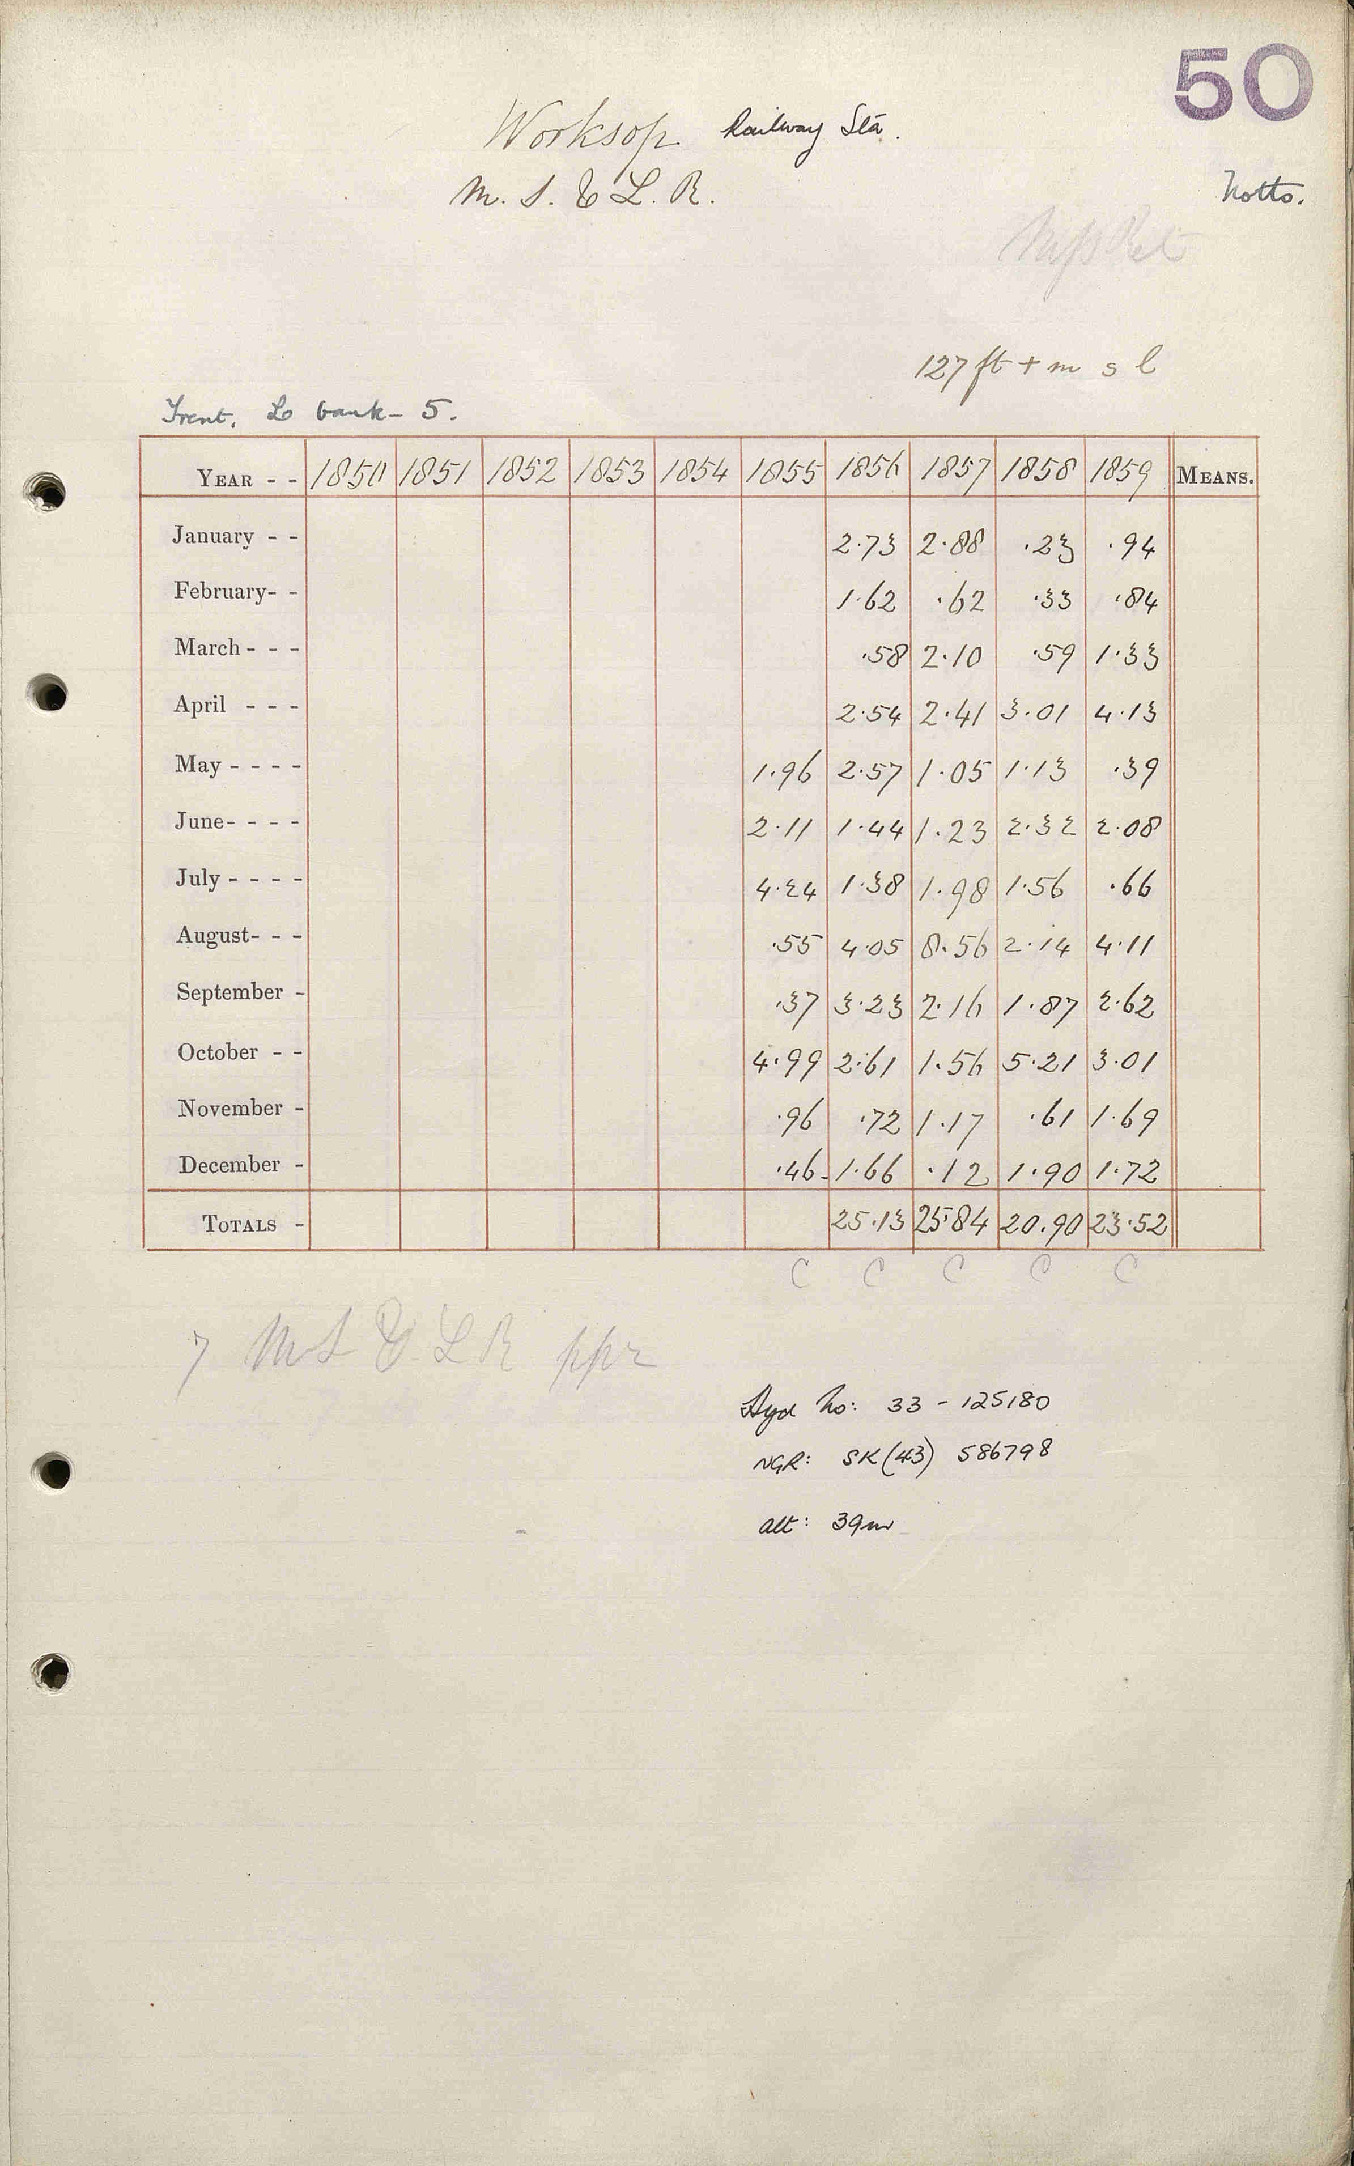 50
Worksop Railway Sta.
M. S. & L. R.
Notts.
127 ft + m s l
Trent. L. bank - 5.
YEAR - - 1850 1851 1852 1853 1854 1855 1856 1857 1858 1859 MEANS.
January - - 2.73 2.88 .23 .94
February- - 1.62 .62 .33 .84
March - - - .58 2.10 .59 1.33
April - - - 2.54 2.41 3.01 4.13
May - - - - 1.96 2.57 1.05 1.13 .39
June- - - - 2.11 1.44 1.23 2.32 2.08
July - - - - 4.24 1.38 1.98 1.56 .66
August- - - .55 4.05 8.56 2.14 4.11
September - .37 3.23 2.16 1.87 2.62
October - - 4.99 2.61 1.56 5.21 3.01
November - .96 .72 1.17 .61 1.69
December - .46 1.66 .12 1.90 1.72
TOTALS - 25.13 25.84 20.90 23.52
C C C C C
7 M S & L R ppr
Hyd No: 33 - 125180
NGR: SK (43) 586798
alt: 39m